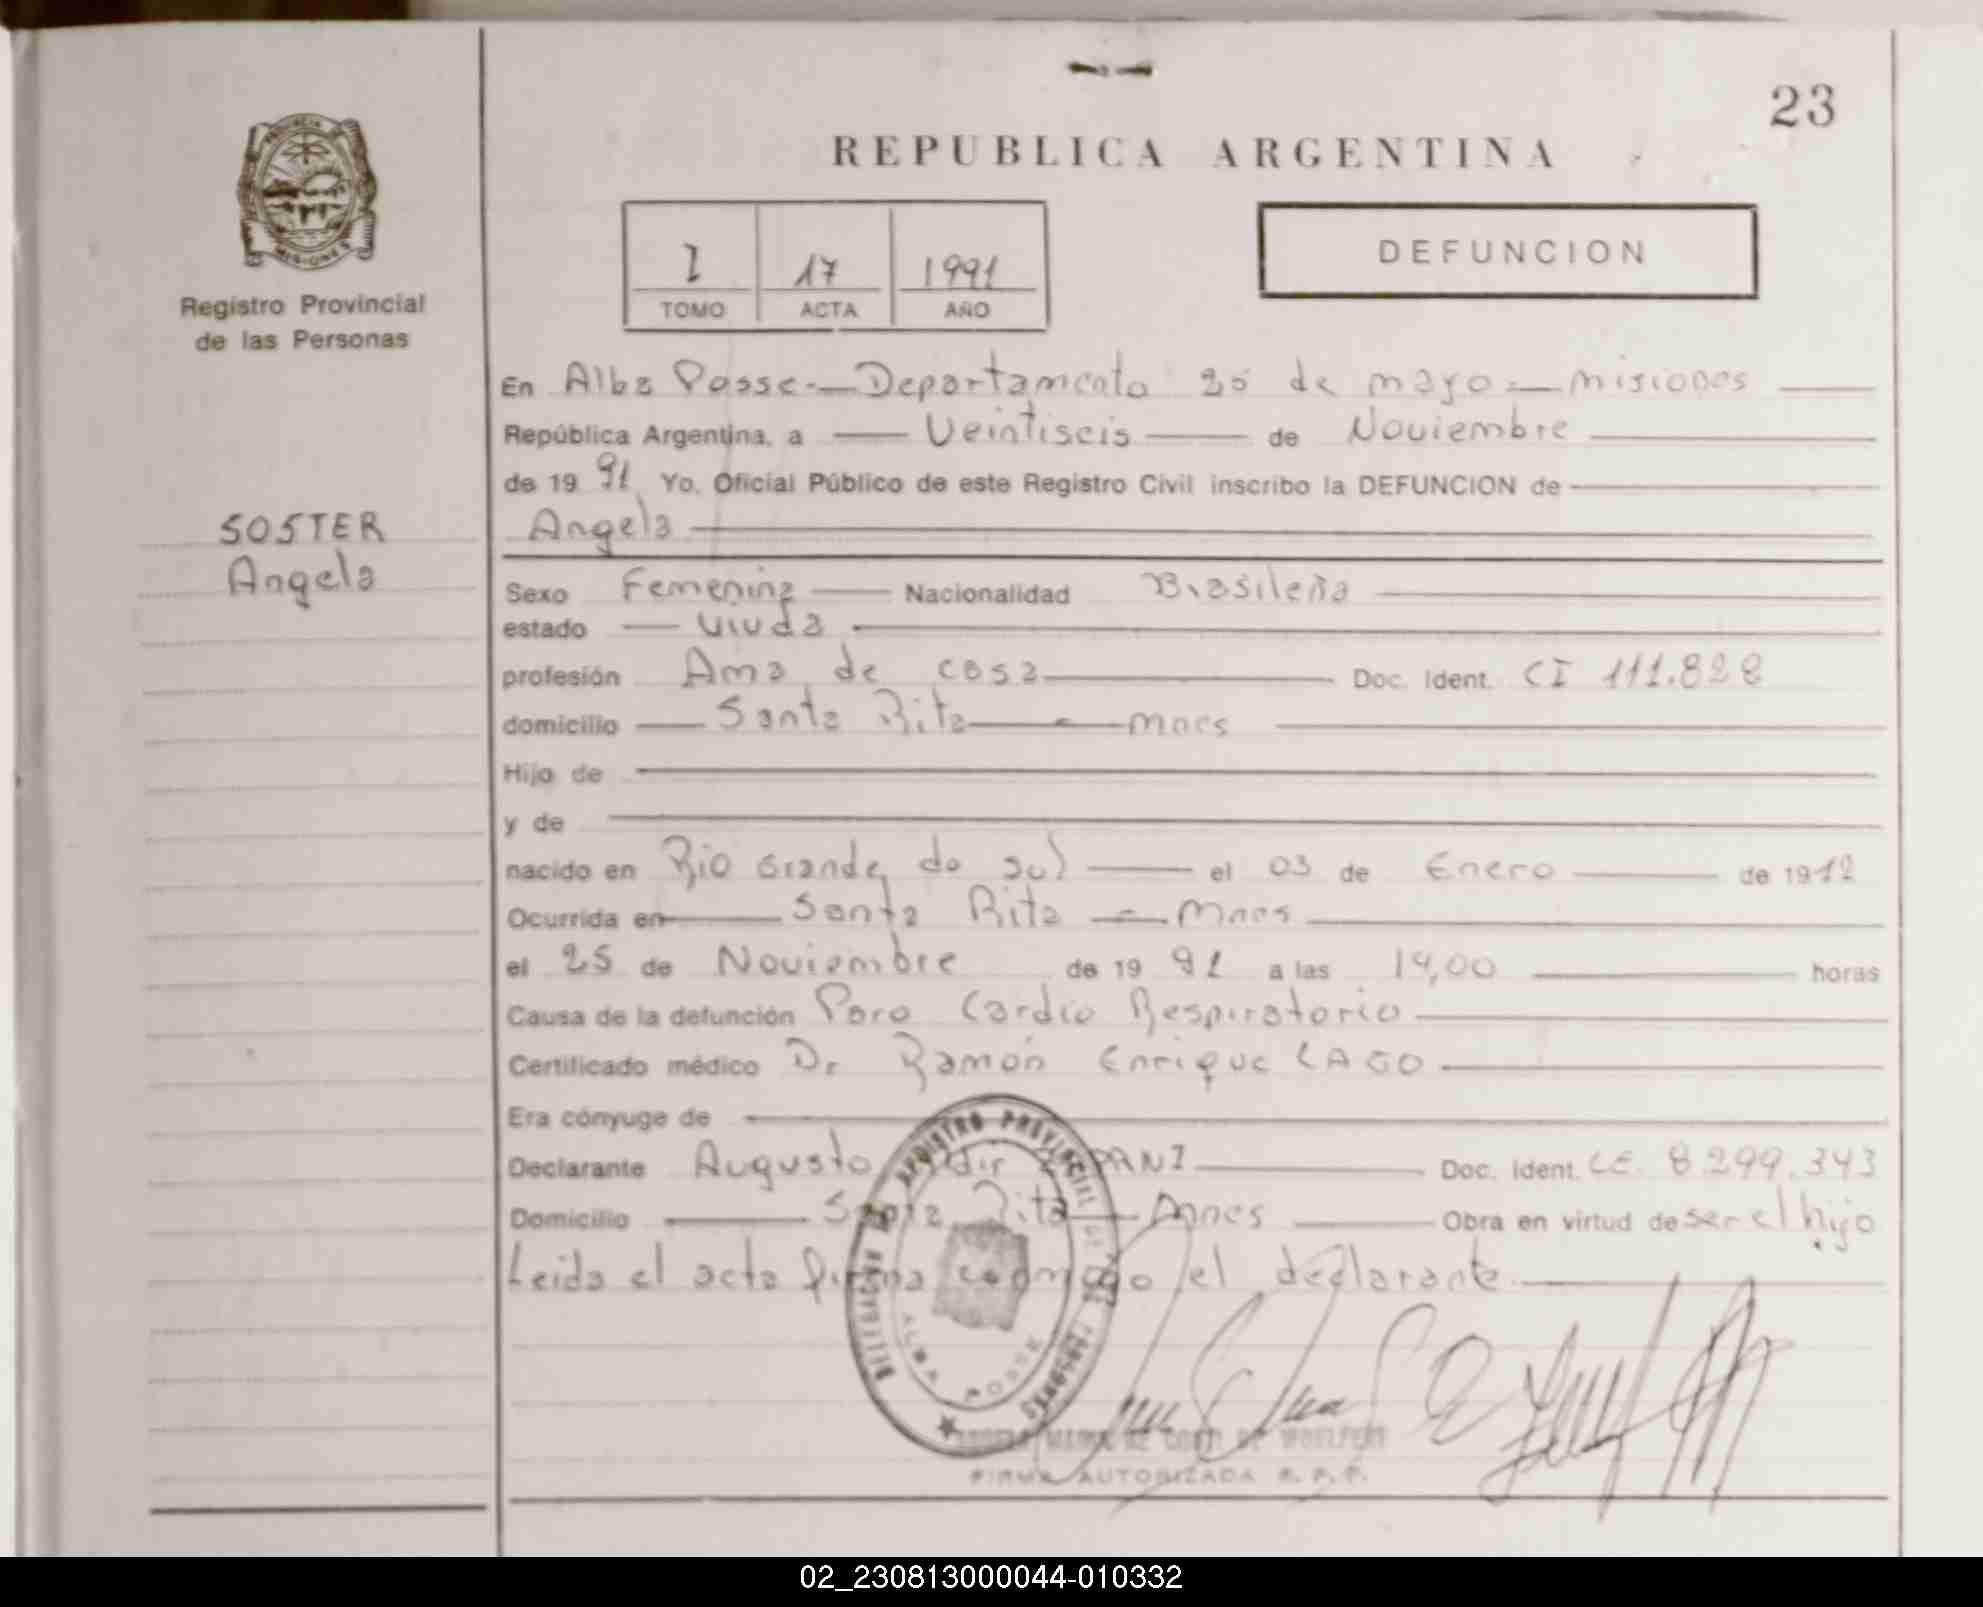 23
REPUBLICA ARGENTINA
PROVINCIA DE
MISIONES
Registro Provincial
de las Personas
I 17 1991
TOMO ACTA AÑO
DEFUNCION
SOSTER
Angela
En Alba Posse.- Departamento 25 de mayo - misiones
República Argentina, a Veintiseis de Noviembre
de 19 91 Yo, Oficial Público de este Registro Civil inscribo la DEFUNCION de
Angela
Sexo Femenina Nacionalidad Brasileña
estado Viuda
profesión Ama de casa Doc. Ident. CI 111.828
domicilio Santa Rita - mnes
Hijo de
y de
nacido en Rio Grande do sul el 03 de Enero de 1912
Ocurrida en Santa Rita - Mnes
el 25 de Noviembre de 19 91 a las 14,00 horas
Causa de la defunción Paro Cardio Respiratorio
Certificado médico Dr Ramón Enrique LAGO
Era cónyuge de
Declarante Augusto Doc. Ident. LE. 8.299.343
Domicilio Santa Rita - Mnes Obra en virtud de ser el hijo
Leida el acta firma conmigo el declarante
DELEGACION DEL REGISTRO PROVINCIAL DE LAS PERSONAS
ALBA POSSE
FIRMA AUTORIZADA R. P. P.
02_230813000044-010332